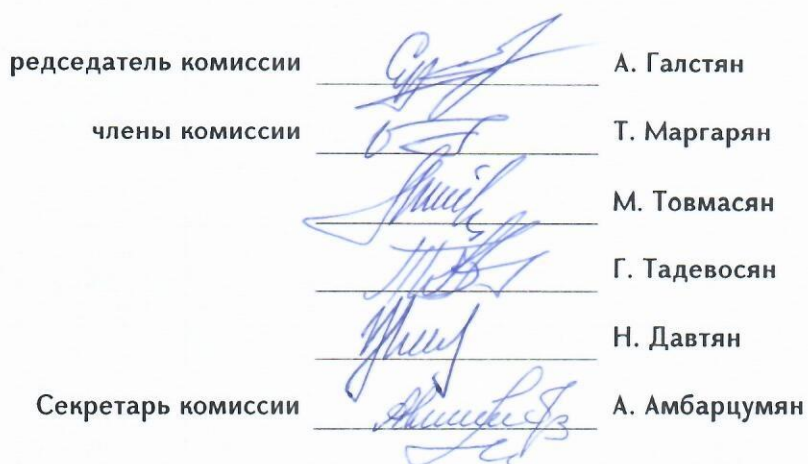 редседатель комиссии А. Галстян
члены комиссии Т. Маргарян
М. Товмасян
Г. Тадевосян
Н. Давтян
Секретарь комиссии А. Амбарцумян